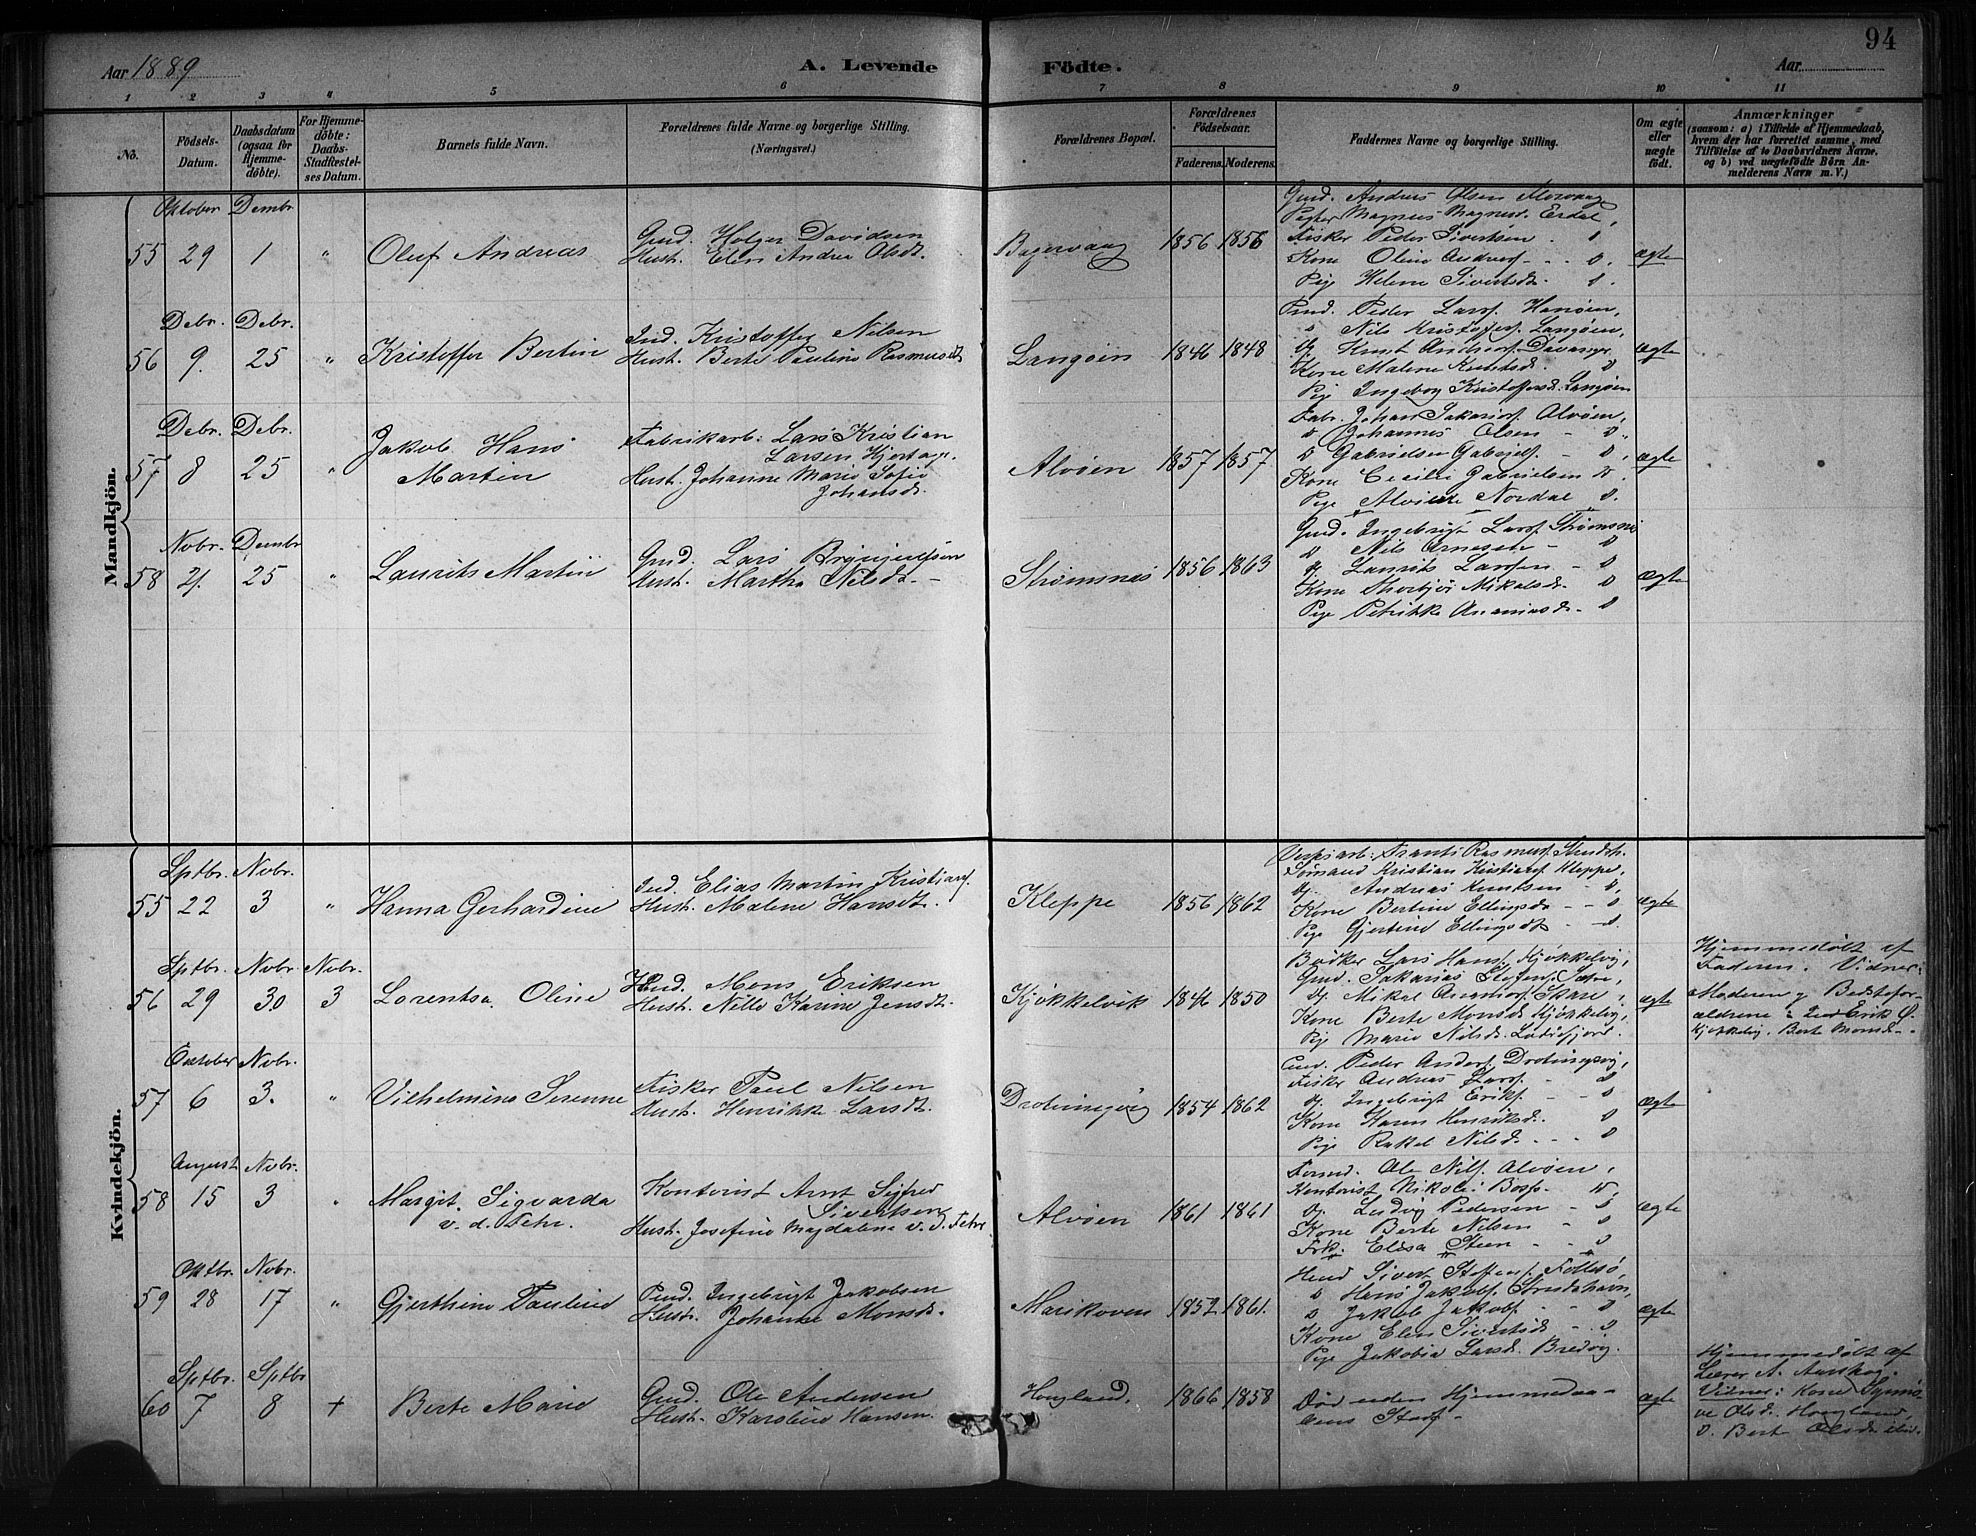 94
Aar 1889
A. Levende
Födte.
Aar
1 2 3 4 5 6 7 8 9 10 11
No.
Födsels-Datum.
Daabsdatum (ogsaa for Hjemme-döbte).
For Hjemme-döbte: Daabs-Stadfæstel-ses Datum.
Barnets fulde Navn.
Forældrenes fulde Navne og borgerlige Stilling. (Næringsvei.)
Forældrenes Bopæl.
Forældrenes Födselsaar.
Faderens. Moderens.
Faddernes Navne og borgerlige Stilling.
Om ægte eller uægte födt.
Anmærkninger
(saasom: a) i Tilfælde af Hjemmedaab, hvem der har forrettet samme, med Tilföielse af to Daabsvidners Navne, og b) ved uægtefödte Börn An-melderens Navn m. V.)
Mandkjön.
Oktober Dembr
55 29 1 " Oluf Andreas
Gmd. Holger Davidsen
Hust. Elen Andrea Olsdt.
1856 1856
Gmd. Andreas Olsen
Magnus Magnus. Erdal,
Fisker Peder Sivertsen
Kone Oline
Pige Helene Sivertsdt.
ægte
Debr. Debr.
56 9. 25 " Kristoffer Bertin
Ind. Kristoffer Nilsen
Hust. Berte Pauline Rasmusdt
Langøen 1846 1848
Peder Larss. Hanøen,
Nils Kristoffers. Langøen,
Knut Davanger
Kone Malene Knutsdt.
Pige Ingeborg Kristoffersd. Langøen
ægte
Debr. Debr.
57 8 25 " Jakob Hans Martin
Fabrikarb. Lars Kristian
Larsen Hjertaas.
Hust. Johanne Marie Sofie
Johansdt.
Alvøen 1857 1857
Fabr. Johan Sakarias. Alvøen,
Johannes Olsen
Gabrielsen
Kone Cecilie Gabrielsen
Pige Alvilde Nordal
ægte
Nobr. Dembr
58 21. 25 " Laurits Martin
Gmd. Lars Brynjulfsen
Hust. Martha Nilsdt.
Strømsnes 1856 1863
Gmd. Ingebrigt Larss. Strømsnes
Nils Arnesen
Laurits Larsen
Kone Thorbjør Mikalsdt.
Pige Petrikke Ananiasdt.
ægte
Kvindekjön.
Sptbr. Nobr.
55 22 3 " Hanna Gerhardine
Ind. Elias Martin Kristians.
Hust. Malene Hansdt.
Kleppe 1856 1862
Frants Rasmuss.
Sømand Kristian Kristians. Kleppe,
Andreas Knutsen
Kone Bertine Ellingsdt.
Pige Gjertine Ellingsdt
ægte
Sptbr. Nobr. Nobr.
56 29 30 3 Lorentsa Oline
Mons Eriksen
Hust. Nille Karine Jensdt.
Kjøkkelvik 1846 1850
Bødker Lars Hans. Kjøkkelvig,
Gmd. Sakarias
Mikal Skare,
Kone Berte Monsd. Kjøkkelvig,
Pige Marie Nilsd.
ægte
Hjemmedøbt af
Faderen. Vidner:
Moderen og Bedstefor-
ældrene: Erik O.
Kjøkkelvig. Berte Monsd.
Oktober Nobr.
57 6 3. " Vilhelmine Serenne
Fisker Paul Nilsen
Hust. Henrikke Larsdt.
Drotningvig 1854 1862
Peder Anders. Drotningvig,
Fisker Andreas Larss.
Ingebrigt Eriks.
Kone Karen Henriksdt.
Pige Rakel Nilsd.
ægte
August Nobr.
58 15 3 " Margit Sigvarda
v. d. Fehr.
Kontorist Arnt Sigfred
Sivertsen
Hust. Josefine Magdalene v. d. Fehr.
Alvøen 1861 1861
Formd. Ole Nils. Alvøen,
Kontorist Nikolai
Ludvig Pedersen
Kone Berte Nilsen
Frk. Elisa Steen
ægte
Oktbr. Nobr.
59 28 17 " Gjerthine Pauline
Ingebrigt Jakobsen
Hust. Johanne Monsdt.
Marikoven 1852 1861.
Sivert Follesø,
Hans Jakobs. Strudshavn,
Jakob Jakobs.
Kone Elen Sivertsdt
Pige Jakobia Larsd. Bredvig.
ægte
Sptbr. Sptbr
60 7 8 + Berte Marie
Gmd. Ole Andersen
Hust. Karoline Hansen.
Hougland. 1866 1858
Død uden Hjemmedaa-
bens Stadf.
ægte
Hjemmedøbt af
Lærer A. Aarskog.
Vidner: Kone Synnø-
ve Olsd. Hougland,
Berte Olsdt